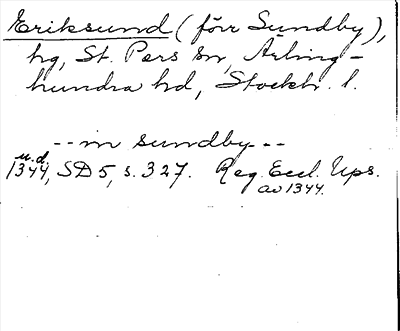 Eriksund (förr Sundby),
hg, St. Pers sn, Ärling-
hundra hd, Stockh. l.
-- in sundby --
u.d.
1344, SD 5, s. 327. Reg. Eccl. Ups.
av 1344.